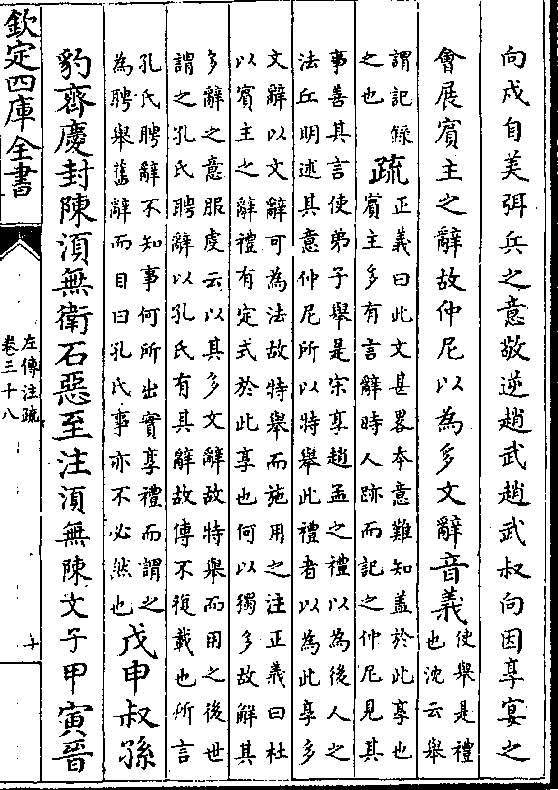 向戌自美弭兵之意敬逆趙武趙武叔向因享宴之
會展賓主之辭故仲尼以為多文辭音義使舉是禮
也沈云舉
謂記録
之也疏正義曰此文甚畧本意難知蓋於此享也
賓主多有言辭時人跡而記之仲尼見其
事善其言使弟子舉是宋享趙孟之禮以為後人之
法丘明述其意仲尼所以特舉此禮者以為此享多
文辭以文辭可為法故特舉而施用之注正義曰杜
以賓主之辭禮有定式於此享也何以獨多故解其
多辭之意服虔云以其多文辭故特舉而用之後世
謂之孔氏聘辭以孔氏有其辭故傳不復載也所言
孔氏聘辭不知事何所出實享禮而謂之
為聘舉舊辭而目曰孔氏事亦不必然也戊申叔孫
豹齊慶封陳湏無衛石惡至注湏無陳文子甲寅晉
欽定四庫全書
左傳注疏
卷三十八
十